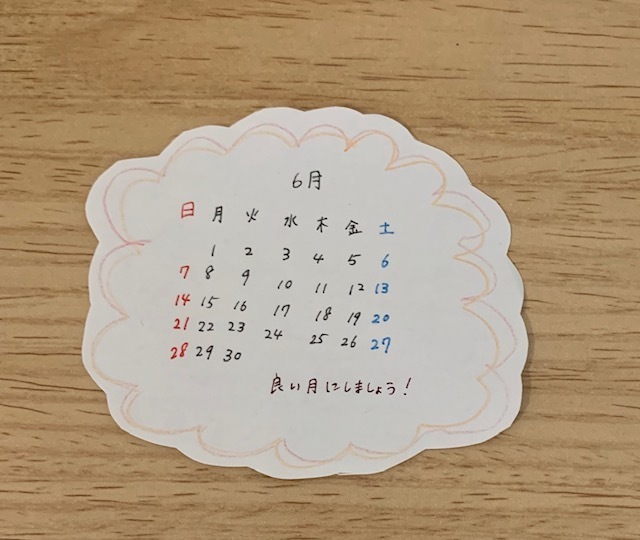 6月
日 月 火 水 木 金 土
1 2 3 4 5 6
7 8 9 10 11 12 13
14 15 16 17 18 19 20
21 22 23 24 25 26 27
28 29 30
良い月にしましょう!